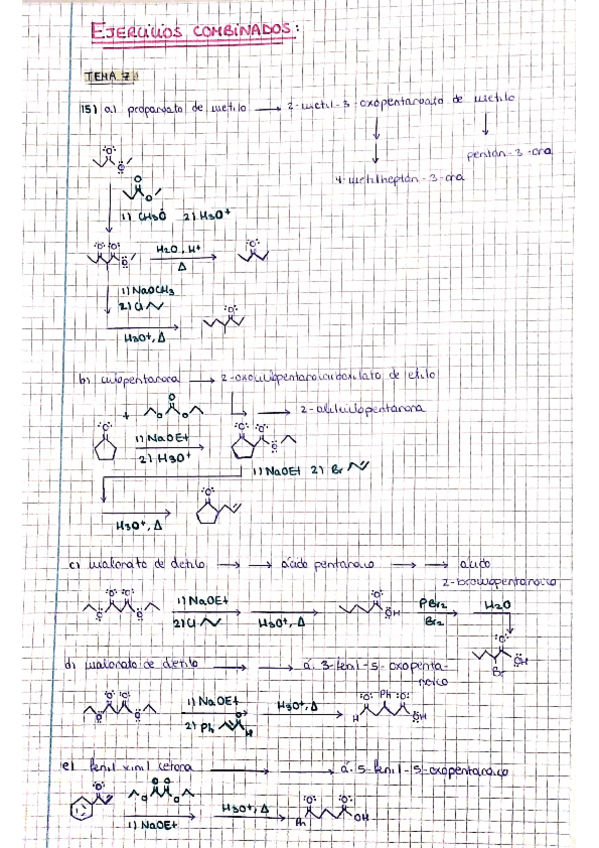 EJERCICIOS COMBINADOS:
TEMA 7
15) a) propanoato de metilo → 2-metil-3-oxopentanoato de metilo
pentan-3-ona
4-metilheptan-3-ona
1) CH3O 2) H3O+
H2O, H+
Δ
1) NaOCH3
2) Cl
H3O+, Δ
b) ciclopentanona → 2-oxociclopentanocarboxilato de etilo
→ 2-alilciclopentanona
+
1) NaOEt
2) H3O+
1) NaOEt 2) Br
H3O+, Δ
c) malonato de dietilo → → ácido pentanoico → → ácido
2-bromopentanoico
1) NaOEt
2) Cl
H3O+, Δ
OH
PBr3
Br2
H2O
OH
Br
d) malonato de dietilo → → á. 3-fenil-5-oxopenta-
noico
1) NaOEt
2) Ph
H
H3O+, Δ
H
Ph
OH
e) fenil vinil cetona → → á. 5-fenil-5-oxopentanoico
1) NaOEt
H3O+, Δ
Ph
OH